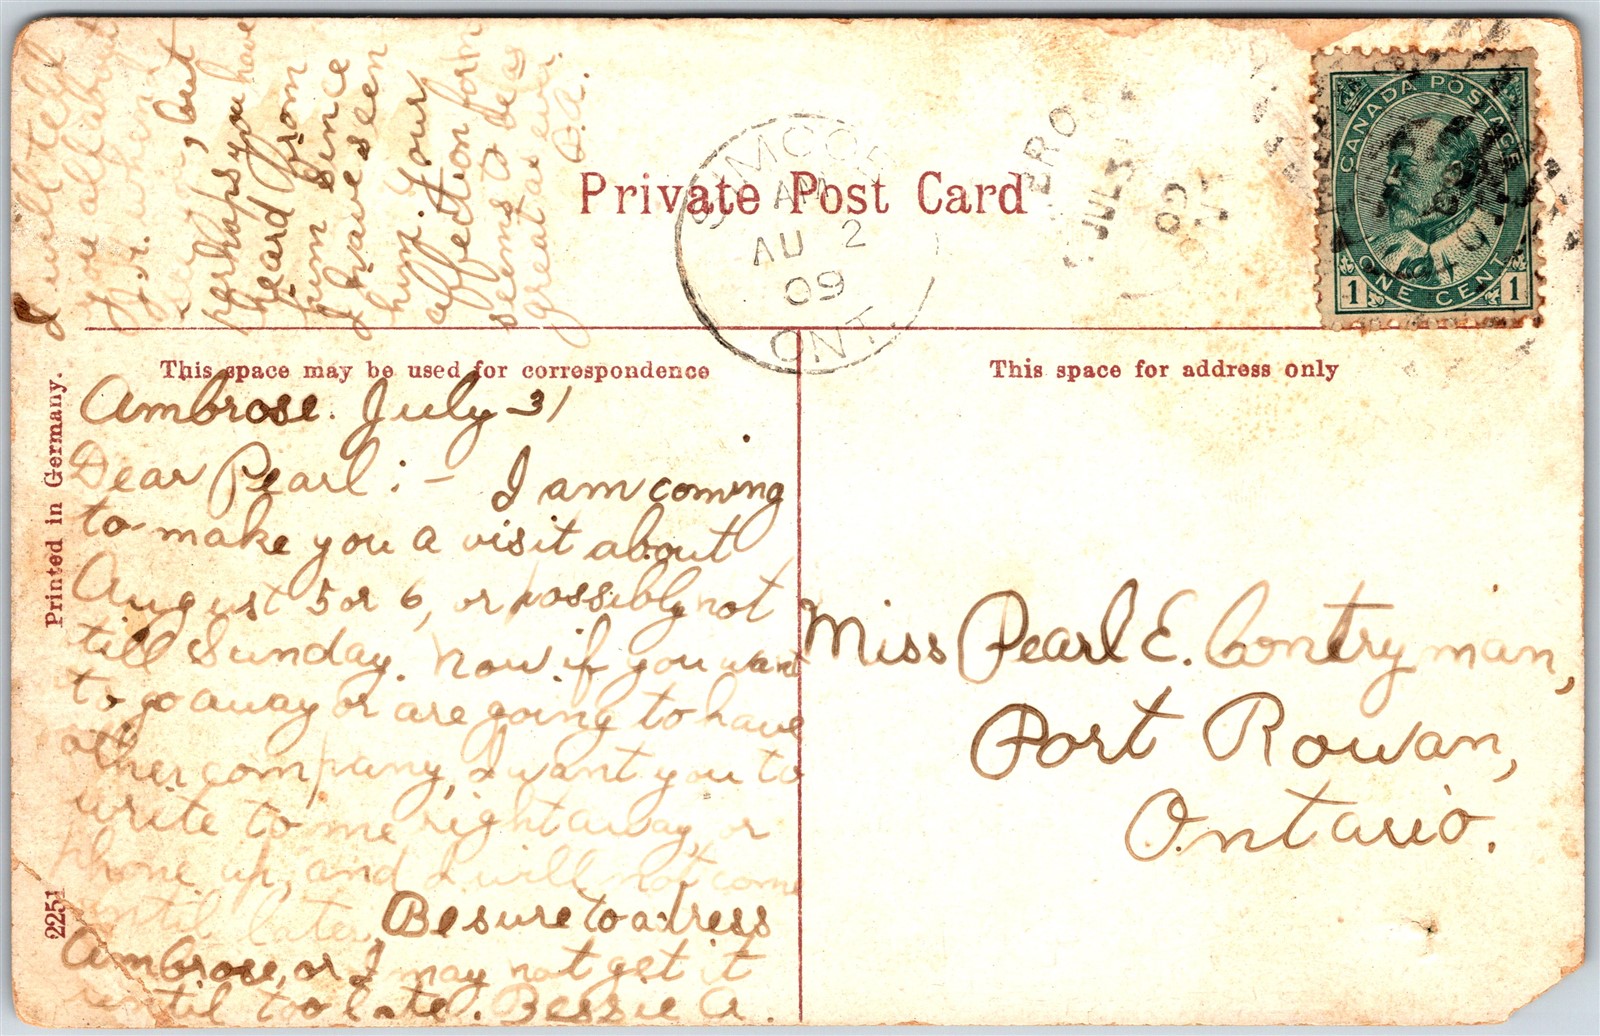 Private Post Card
SIMCOE
AM
AU 2
09
ONT.
BROS
JUL 31
09
CANADA POSTAGE
1 ONE CENT 1
This space may be used for correspondence
This space for address only
Printed in Germany.
2251
Ambrose. July 31
Dear Pearl: - I am coming
to make you a visit about
August 5 or 6, or possibly not
till Sunday. Now if you want
to go away or are going to have
other company, I want you to
write to me right away, or
phone up, and I will not come
until later. Be sure to adress
Ambrose, or I may not get it
until too late. Bessie A.
I will tell
you all about
when I
, but
perhaps you have
heard from
him since
I have seen
him. Your
affection for
seems to be as
great as ever.
B.A.
Miss Pearl E. Contryman,
Port Rowan,
Ontario.